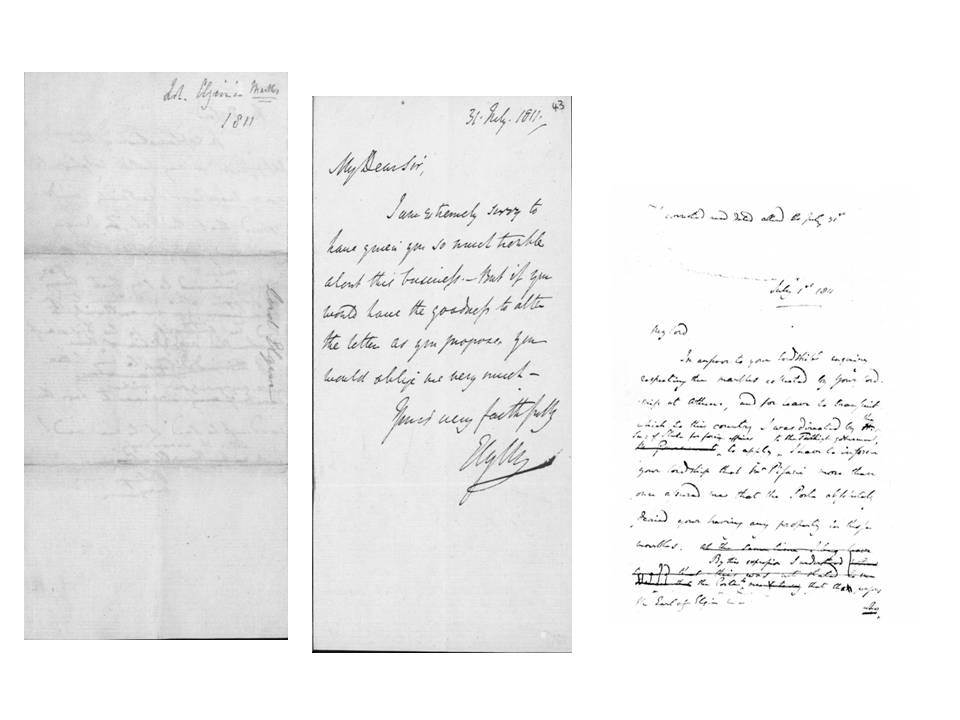 Ld. Elgin's Marbles
1811
Lord Elgin
43
31. July. 1811.
My Dear Sir,
I am extremely sorry to
have given you so much trouble
about this business. – But if you
would have the goodness to alter
the letter as you propose, you
would oblige me very much –
Yours very faithfully
Elgin
corrected and dated altered to July 31st
July 1st 1811
My Lord
In answer to your Lordship's enquiry
respecting the marbles collected by your Lord-
ship at Athens, and for leave to transport
which to this country I was directed by the
Sec. of State for foreign affairs to the Turkish government,
to apply, I have to inform
your Lordship that Mr. Pisani more than
once assured me that the Porte absolutely
denied your having any property in those
marbles. at the same time I beg leave
By this expression I understood
that this was not stated
that the Porte that the
the Earl of Elgin